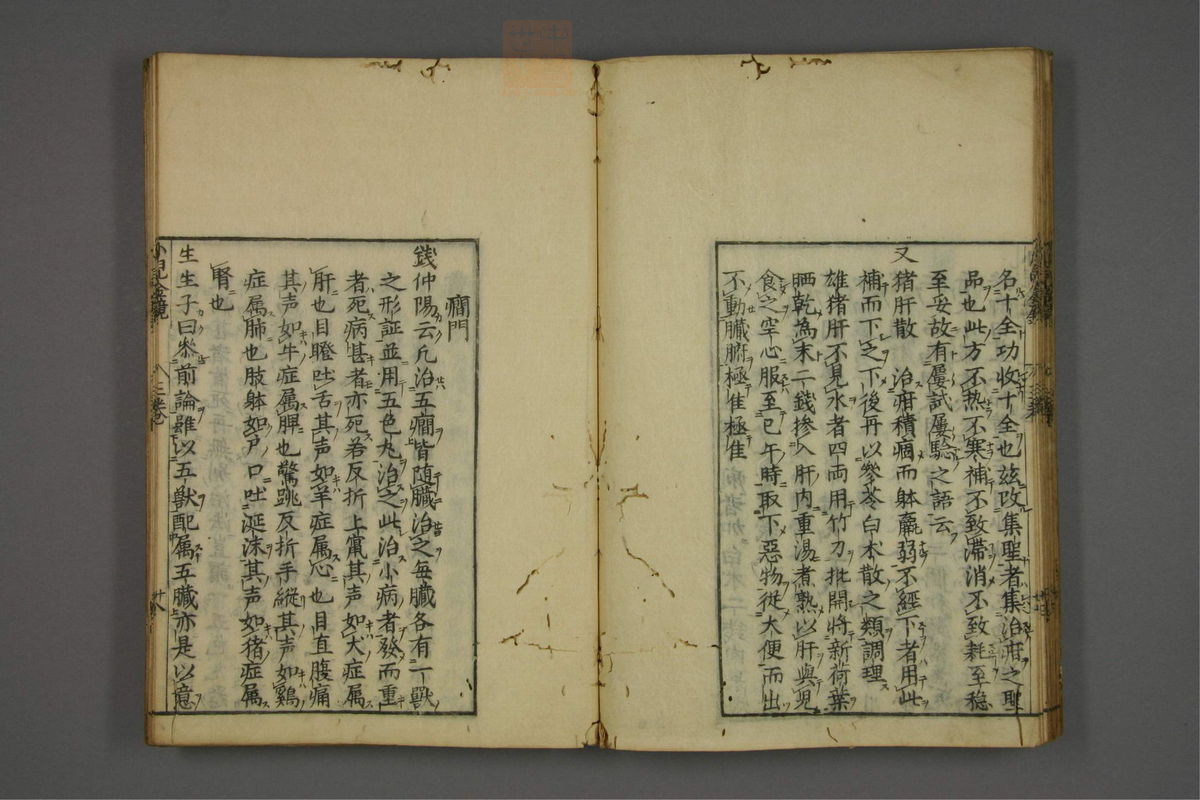 名十全功收十全也玆改集聖者集治疳之聖
品也此方不熱不寒補不致滯消不致耗至穏
至妙故有屡試屡驗之語云
又 猪肝散 治疳積痢而躰羸弱不經下者用此
補而下之下後丹以參苓白朮散之類調理
雄猪肝不見水者四両用竹刀批開將新荷葉
晒乾為末二錢摻入肝内重湯煮熟以肝與児
食之罕心服至巳午時取下惡物從大便而出
不動臓腑極隹極隹
癇門
錢仲陽云凢治五癇皆随臓治之毎臓各有一獸
之形証並用五色丸治之此治小病者發而重
者死病甚者亦死若反折上竄其声如犬症属
肝也目瞪吐舌其声如羊症属心也目直腹痛
其声如牛症属脾也驚跳反折手縱其声如鷄
症属肺也肢躰如尸口吐涎沫其声如猪症属
腎也
生生子曰叅前論雖以五獸配属五臓亦是以意